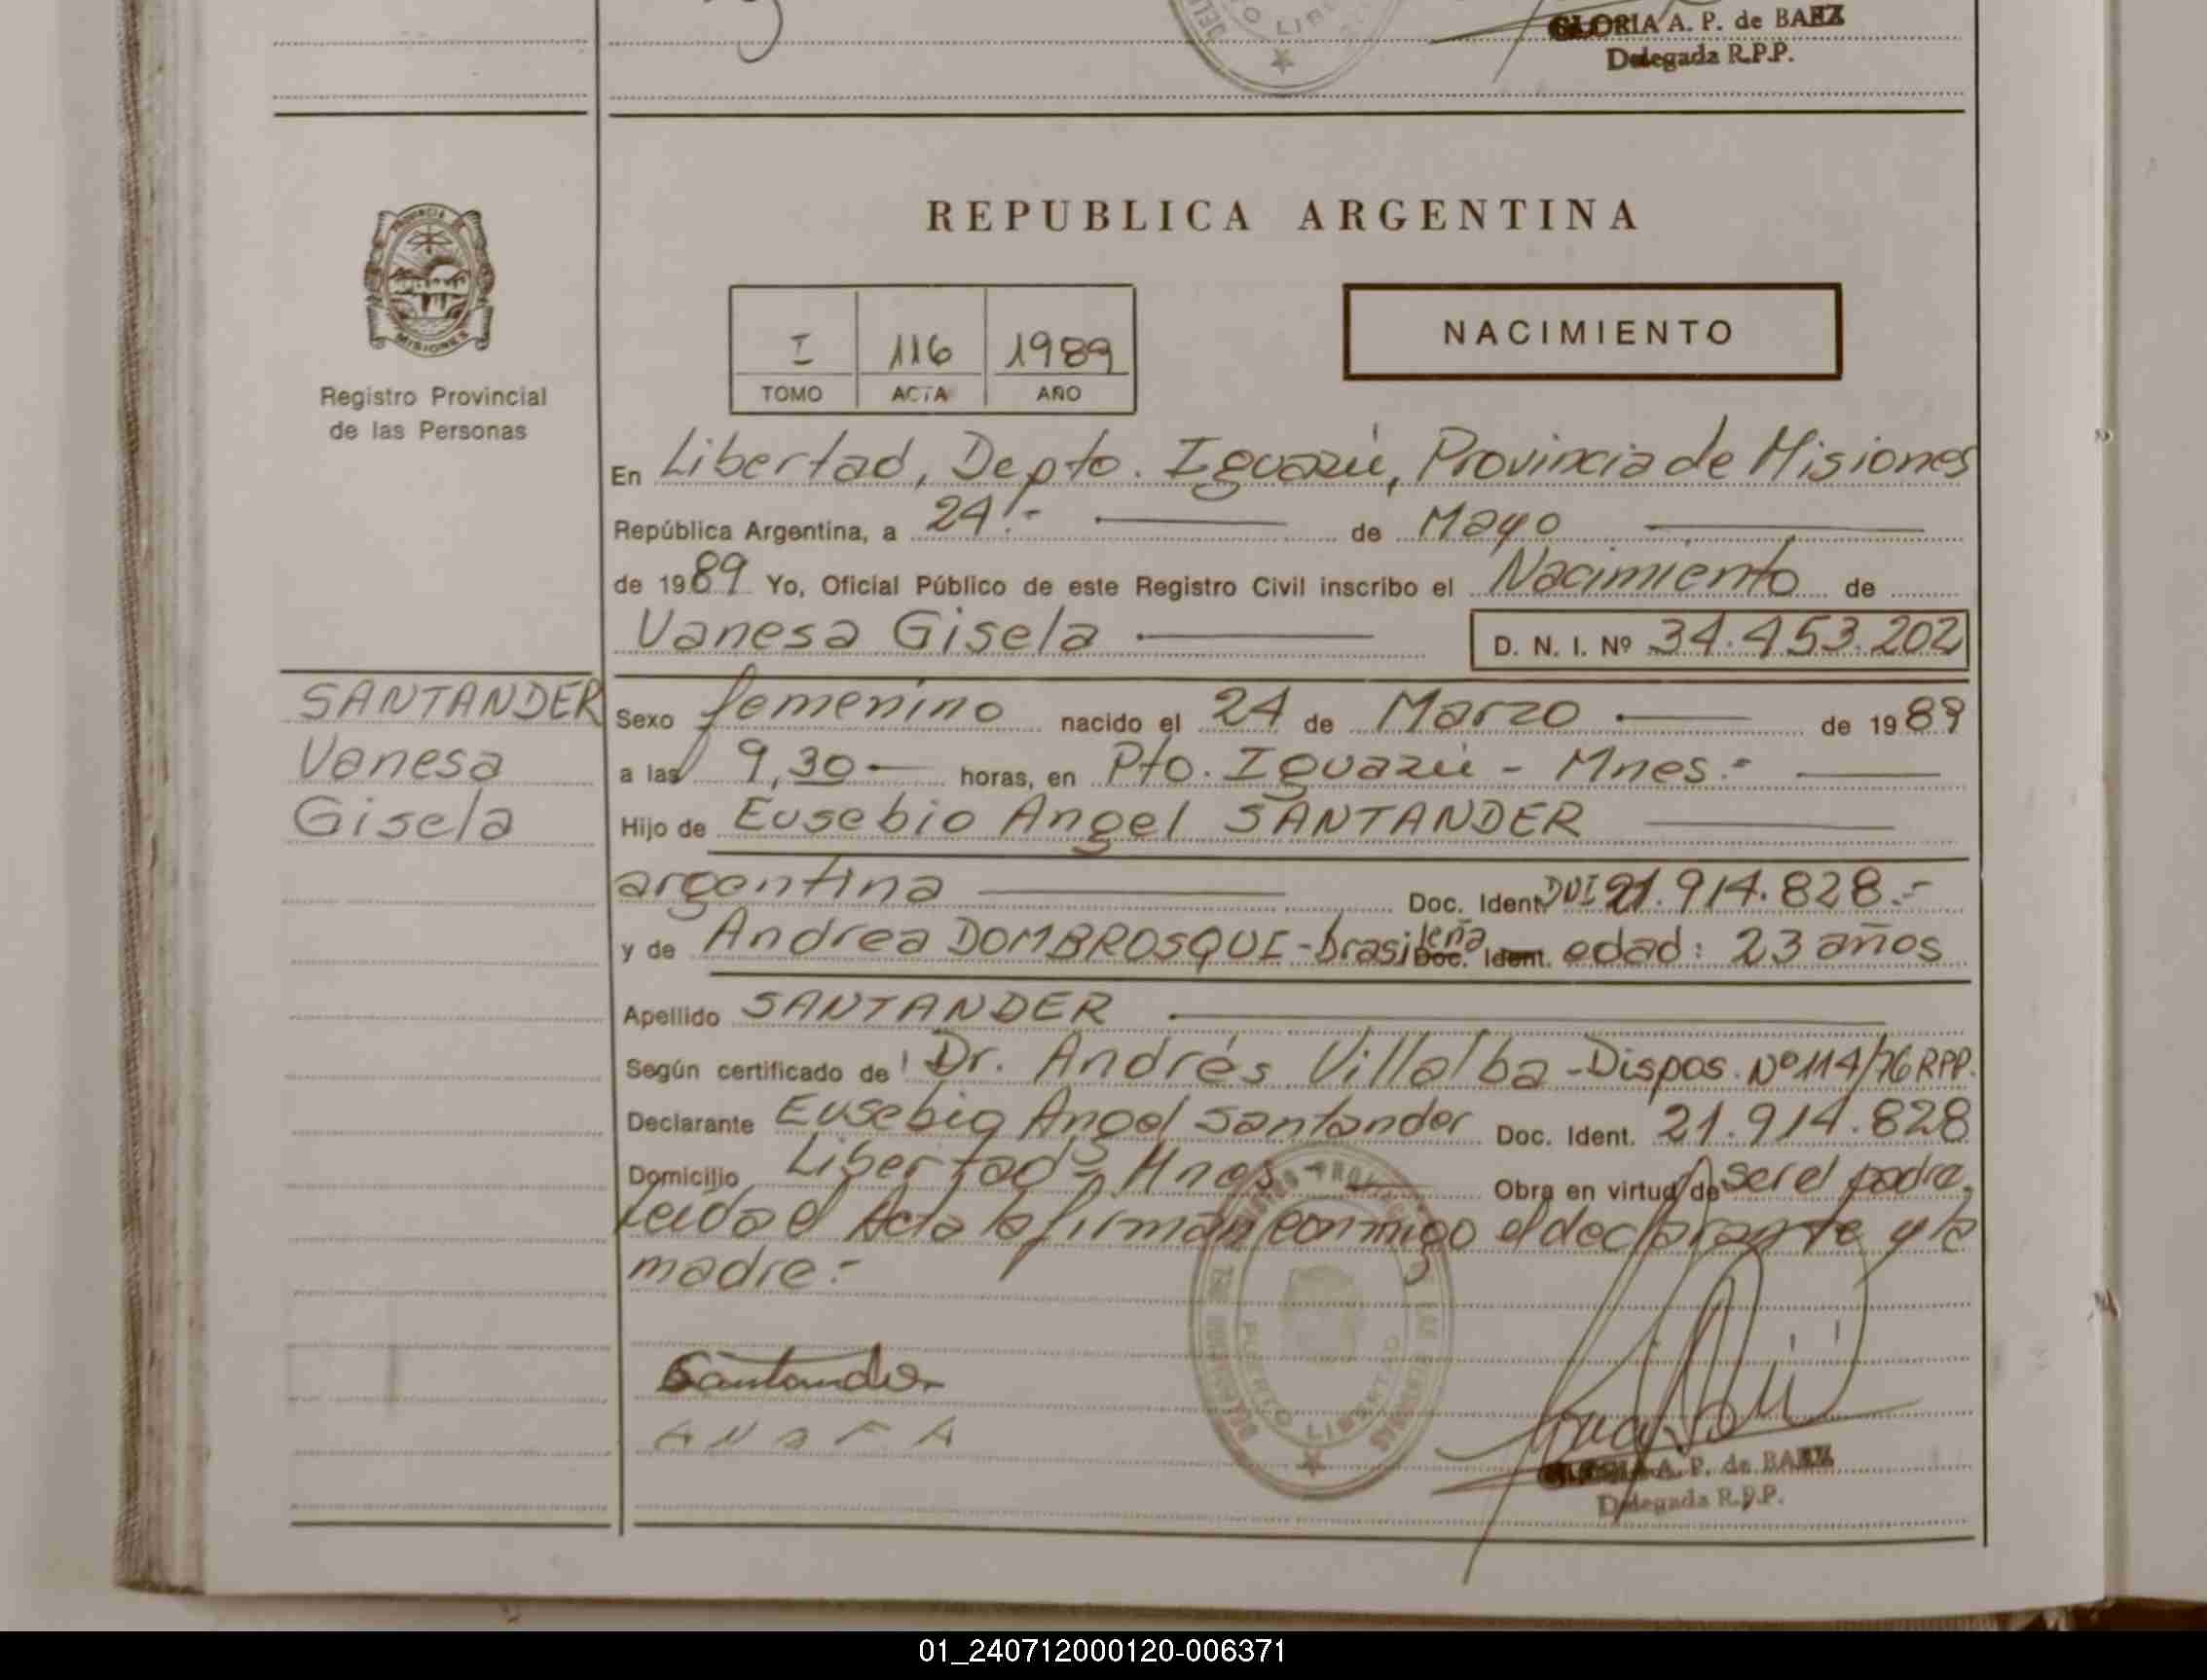 GLORIA A. P. de BAEZ
Delegada R.P.P.
REPUBLICA ARGENTINA
PROVINCIA DE
MISIONES
Registro Provincial
de las Personas
I 116 1989
TOMO ACTA AÑO
NACIMIENTO
En Libertad, Depto. Iguazú, Provincia de Misiones
República Argentina, a 24.- de Mayo
de 1989 Yo, Oficial Público de este Registro Civil inscribo el Nacimiento de
Vanesa Gisela D. N. I. Nº 34.453.202
SANTANDER
Vanesa
Gisela
Sexo femenino nacido el 24 de Marzo de 1989
a las 9,30 horas, en Pto. Iguazú - Mnes.-
Hijo de Eusebio Angel SANTANDER
argentina Doc. Ident. DNI 21.914.828.-
y de Andrea DOMBROSQUI - brasileña Doc. Ident. edad: 23 años
Apellido SANTANDER
Según certificado de Dr. Andrés Villalba - Dispos. Nº 114/76 RPP.
Declarante Eusebio Angel Santander Doc. Ident. 21.914.828
Domicilio Libertad - Mnes Obra en virtud de ser el padre.
Leida el Acta la firman conmigo el declarante y la
madre.-
Santander
PUERTO LIBERTAD
GLORIA A. P. de BAEZ
Delegada R.P.P.
01_240712000120-006371